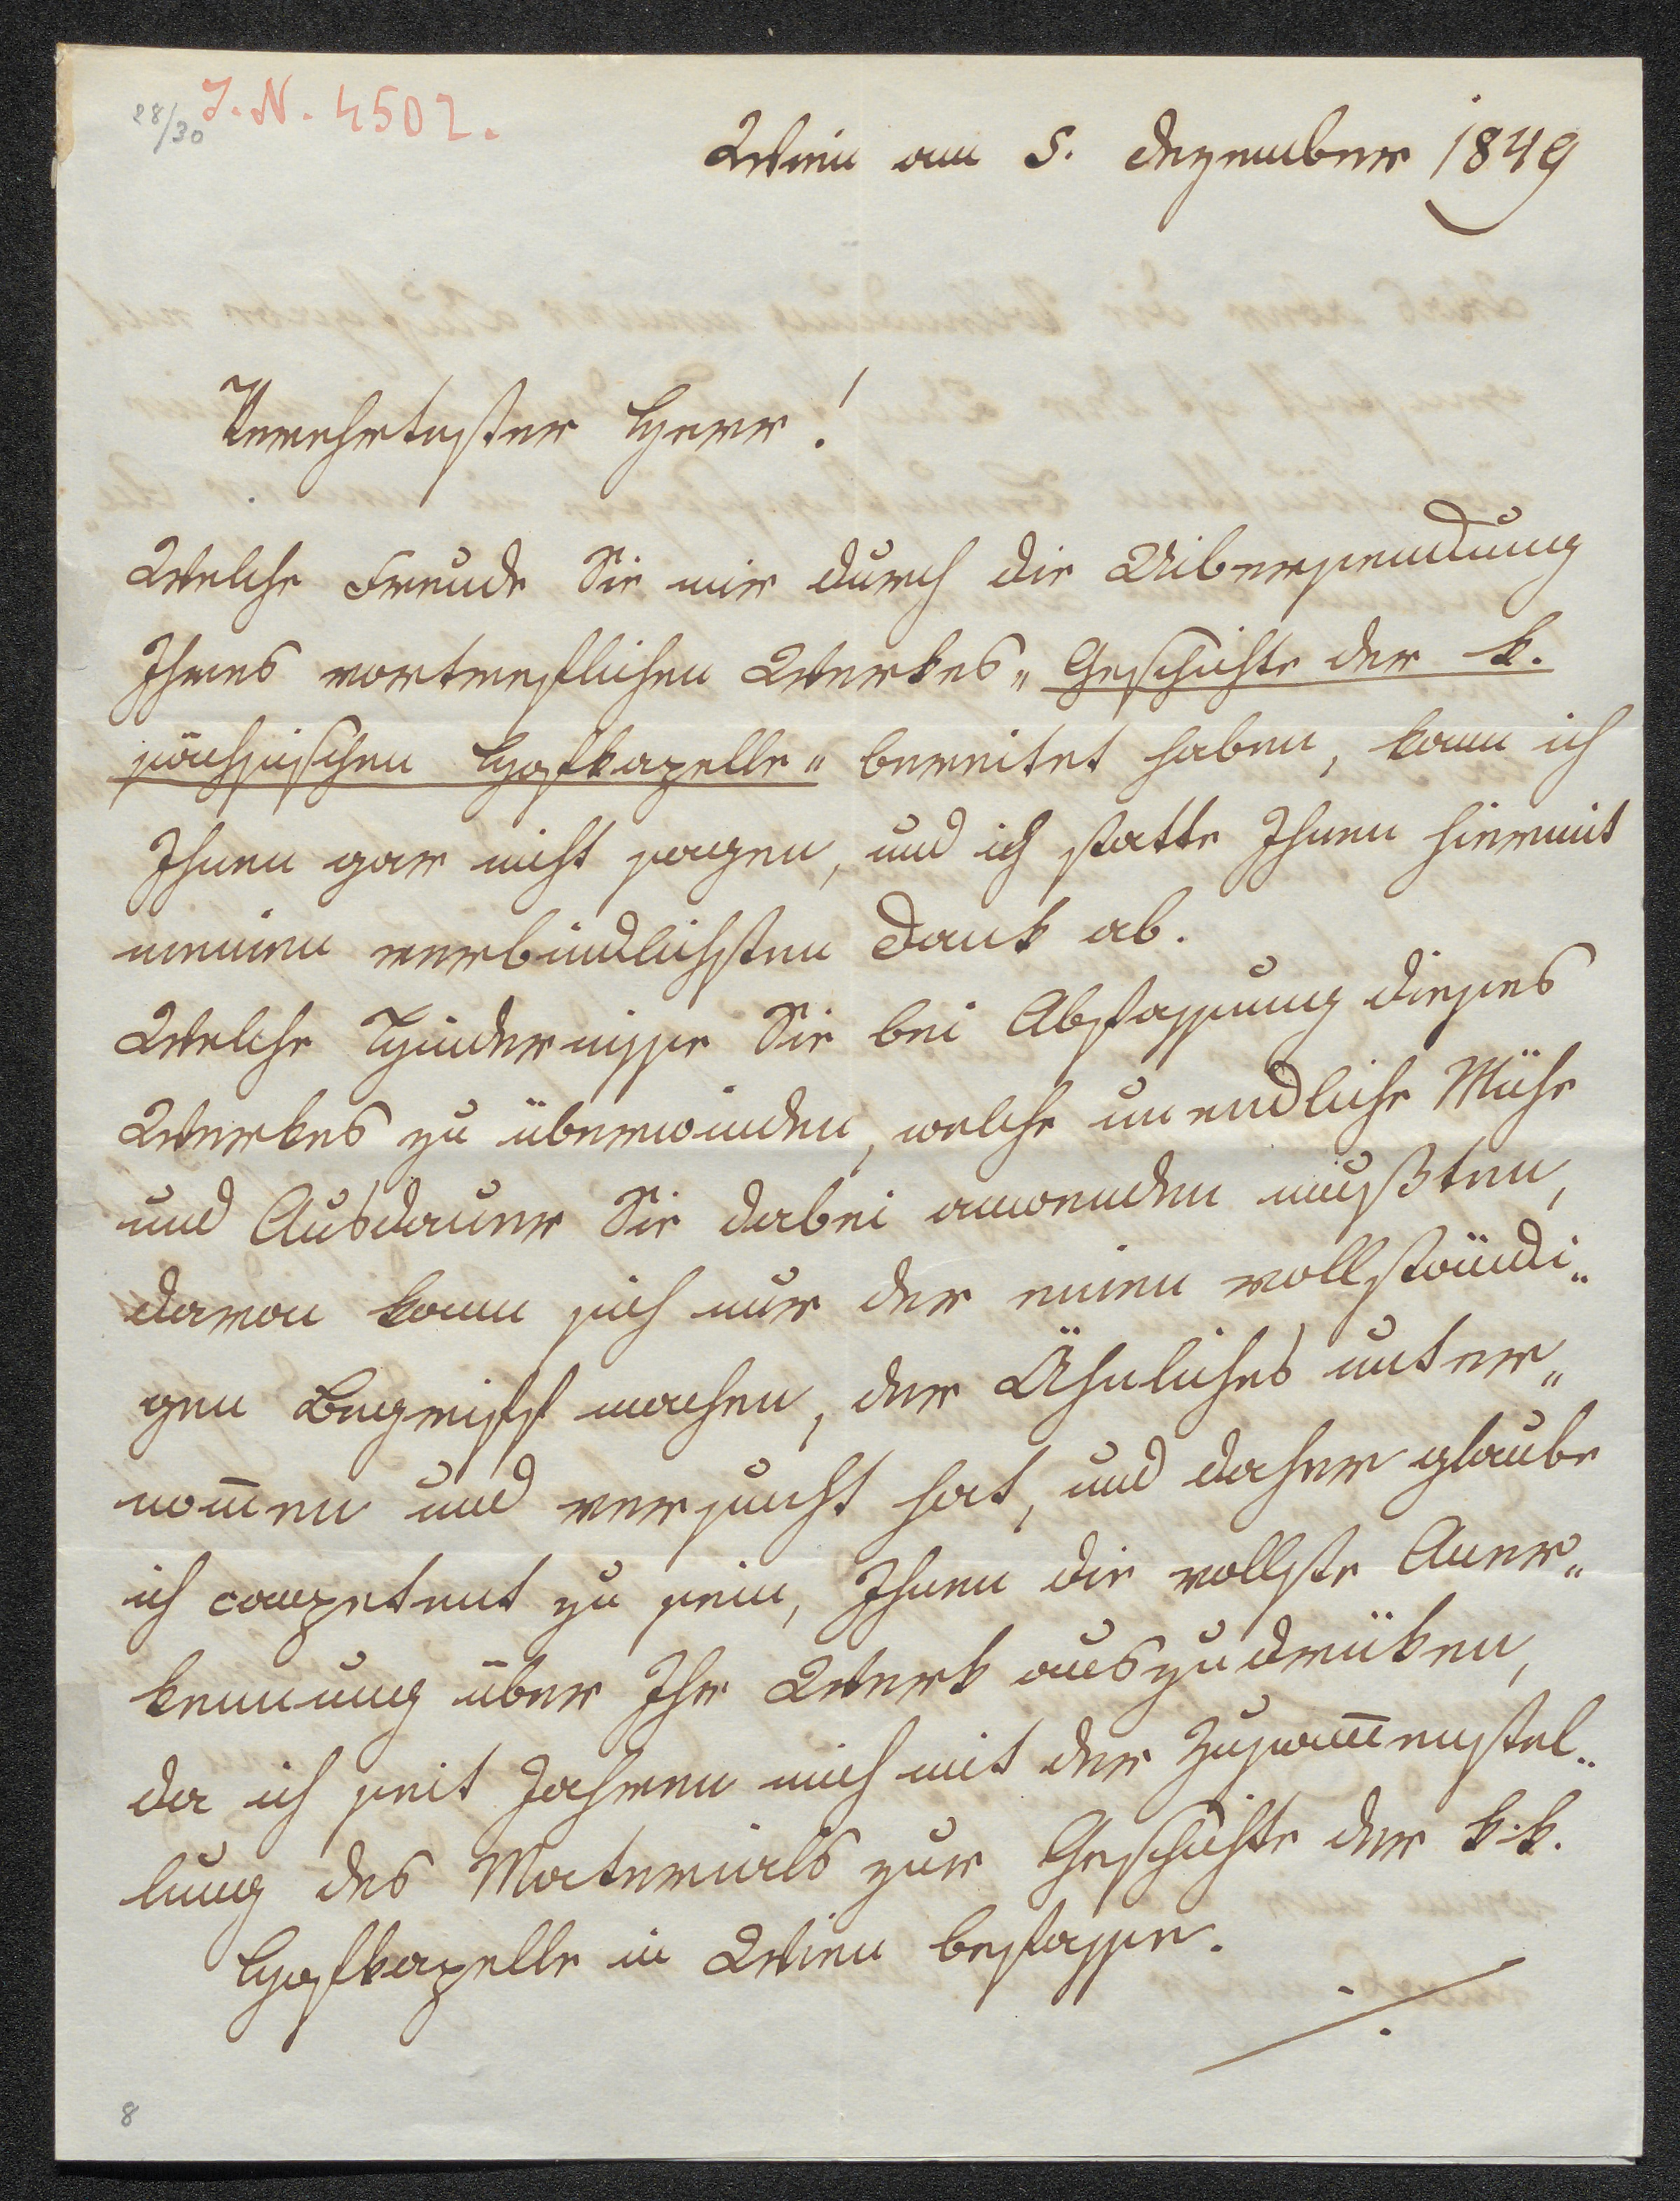 28/30 I. N. 4502.
Wien am 5. Dezember 1849
Verehrtester Herr!
Welche Freude Sie mir durch die Uibersendung
Ihres vortreflichen Werkes „Geschichte der k.
sächsischen Hofkapelle" bereitet haben, kann ich
Ihnen gar nicht sagen, und ich statte Ihnen hiermit
meinen verbindlichsten Dank ab.
Welche Hindernisse Sie bei Abfassung dieses
Werkes zu überwinden, welche unendliche Mühe
und Ausdauer Sie dabei anwenden mußten,
davon kann sich nur der einen vollständi„
gen Begriff machen, der Ähnliches unter„
nom̅en und versucht hat, und daher glaube
ich competent zu sein, Ihnen die vollste Aner„
kennung über Ihr Werk auszudrüken,
da ich seit Jahren mich mit der Zusam̅enstel„
lung des Materials zur Geschichte der k. k.
Hofkapelle in Wien befasse.
./.
8